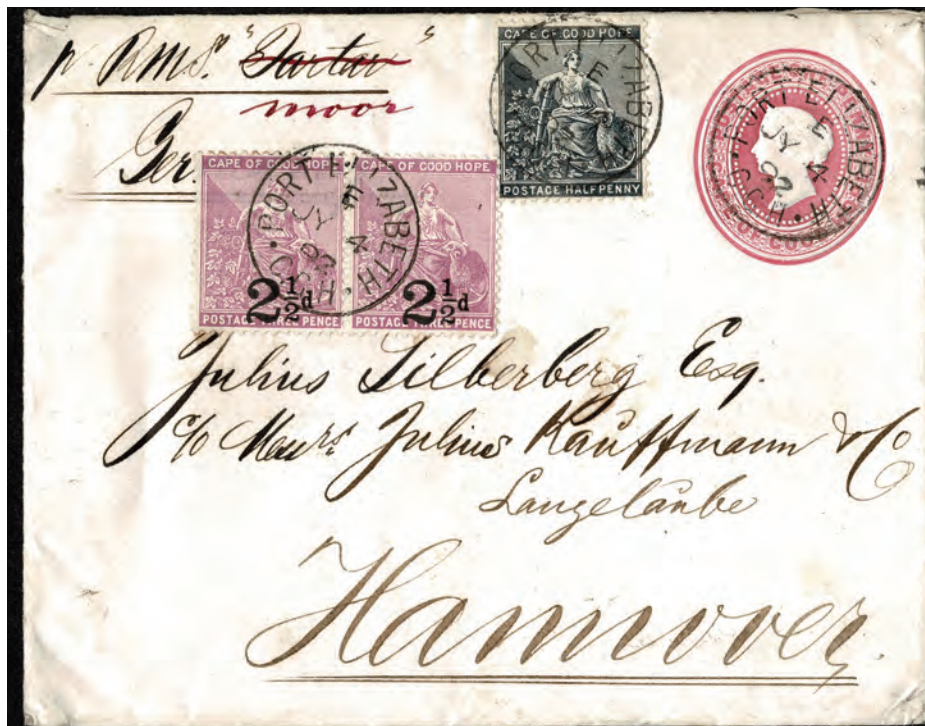 p. RMS. "Tartar"
moor
Ger.
CAPE OF GOOD HOPE
POSTAGE HALFPENNY
PORT ELIZABETH
E
JY 4
92
C.G.H.
CAPE OF GOOD HOPE CAPE OF GOOD HOPE
2½d 2½d
POSTAGE THREE PENCE POSTAGE THREE PENCE
PORT ELIZABETH
E
JY 4
C.G.H.
PORT ELIZABETH
E
Julius Silberberg Esq.
c/o Messrs Julius Kauffmann & Co
Langelaube
Hannover